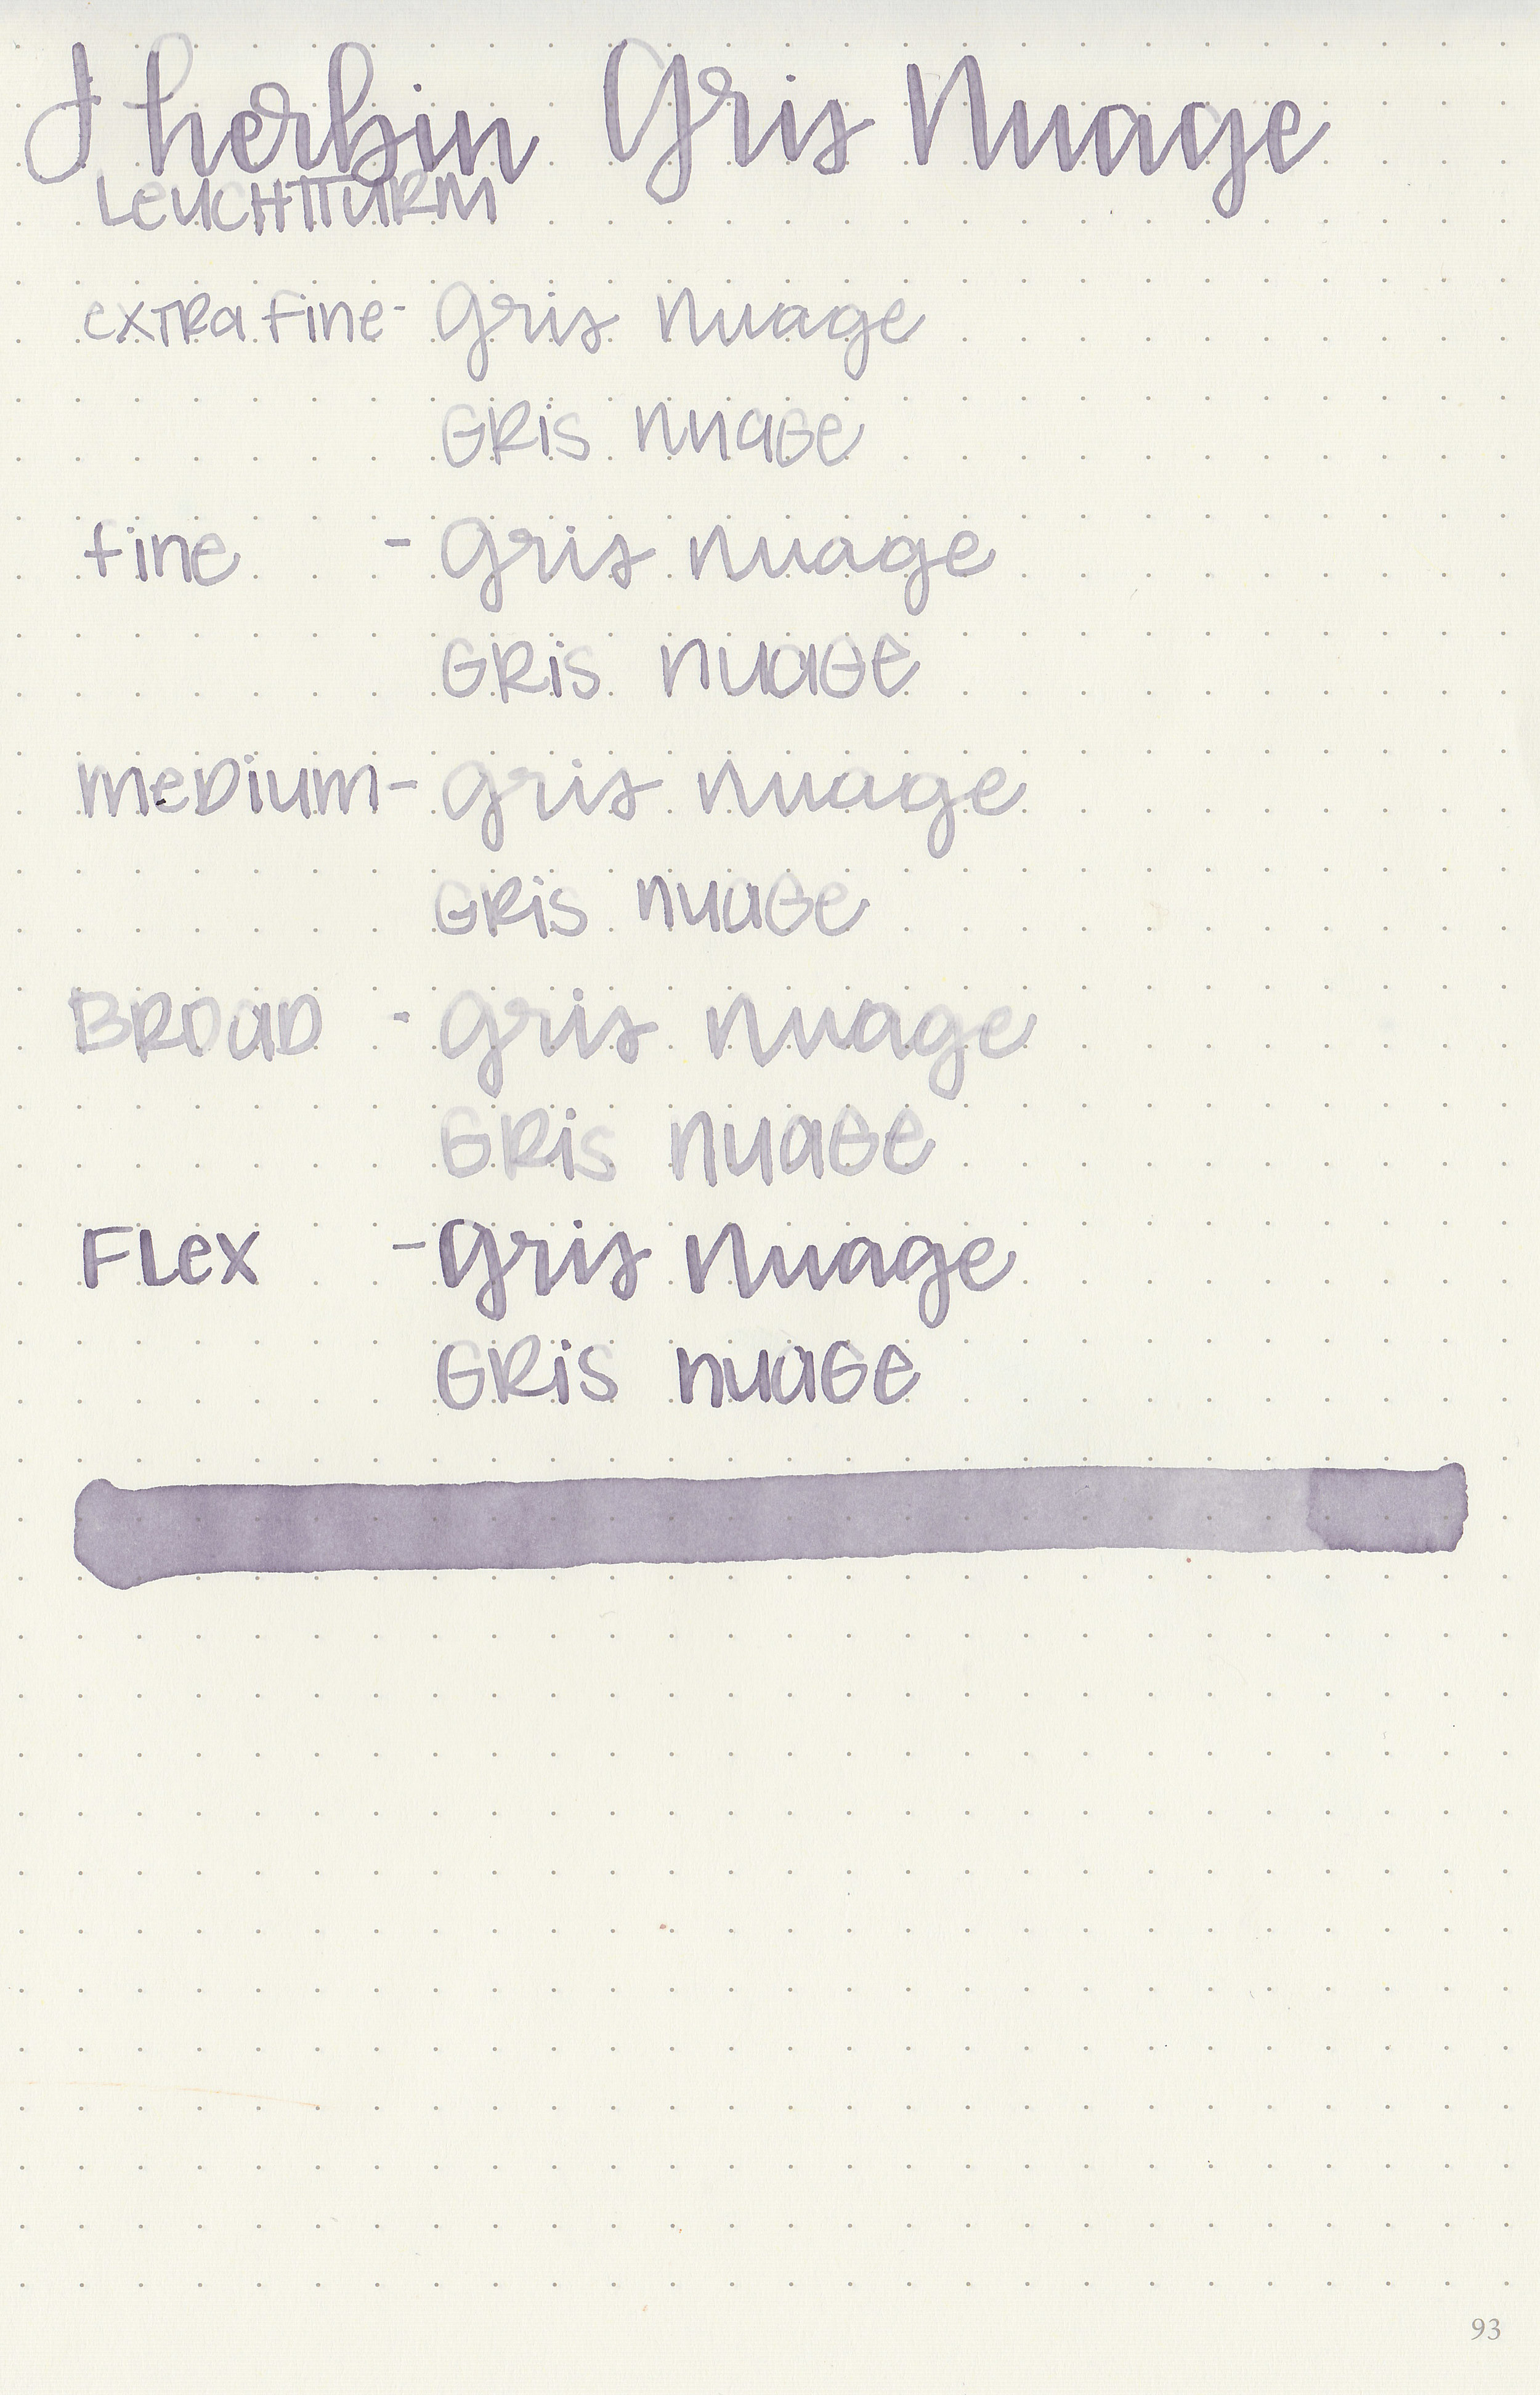 J herbin Gris Nuage
LEUCHTTURM
extra fine- Gris Nuage
GRis nuaGe
fine - Gris Nuage
GRis nuaGe
meDium- Gris Nuage
GRis nuaGe
BROaD - Gris Nuage
GRis nuaGe
FLex - Gris Nuage
GRis nuaGe
93